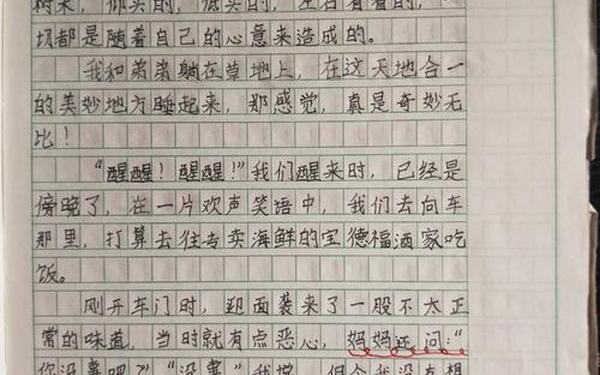 树来，仰头的，低头的，左右看看的，一
切都是随着自己的心意来造成的。
我和弟弟躺在草地上，在这天地合一
的美妙地方睡起来，那感觉，真是奇妙无
比！
“醒醒！醒醒！”我们醒来时，已经是
傍晚了，在一片欢声笑语中，我们去向车
那里，打算去往专卖海鲜的宝德福酒家吃
饭。
刚开车门时，迎面袭来了一股不太正
常的味道，当时就有点恶心，妈妈还问：“
你没事吧？”“没事”我